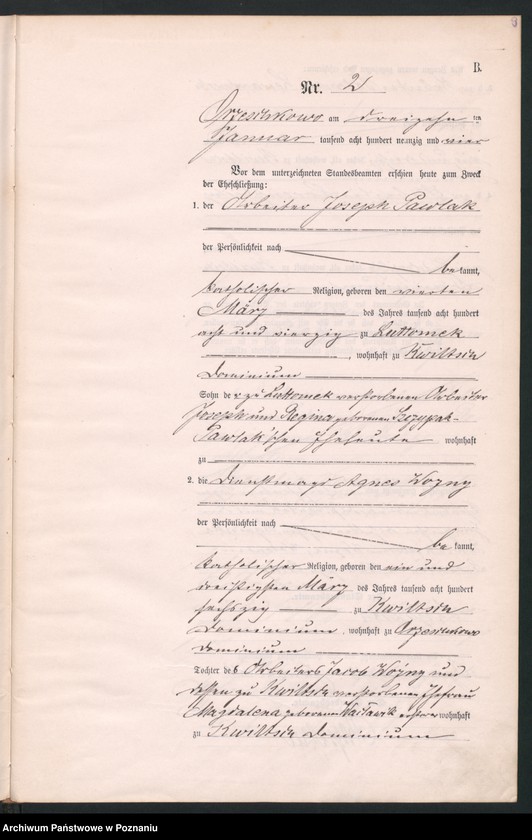 B.
Nr. 2
Orzeschkowo am dreizehn ten
Januar tausend acht hundert neunzig und vier
Vor dem unterzeichneten Standesbeamten erschien heute zum Zweck
der Eheschließung:
1. der Arbeiter Joseph Pawlak
der Persönlichkeit nach
be kannt,
katholischer Religion, geboren den vierten
März des Jahres tausend acht hundert
acht und vierzig zu Luttomek
, wohnhaft zu Kwiltsch
Dominium
Sohn der zu Luttomek verstorbenen Arbeiter
Joseph und Regina geborenen Szczypak-
Pawlak'schen Eheleute wohnhaft
zu
2. die Dienstmagd Agnes Woyny
der Persönlichkeit nach
be kannt,
katholischer Religion, geboren den ein und
dreißigsten März des Jahres tausend acht hundert
sechszig zu Kwiltsch
Dominium, wohnhaft zu Orzeschkowo
Dominium
Tochter des Arbeiters Jacob Woyny und
dessen zu Kwiltsch verstorbenen Ehefrau
Magdalena geborenen Wacławik ersterer wohnhaft
zu Kwiltsch Dominium
Archiwum Państwowe w Poznaniu